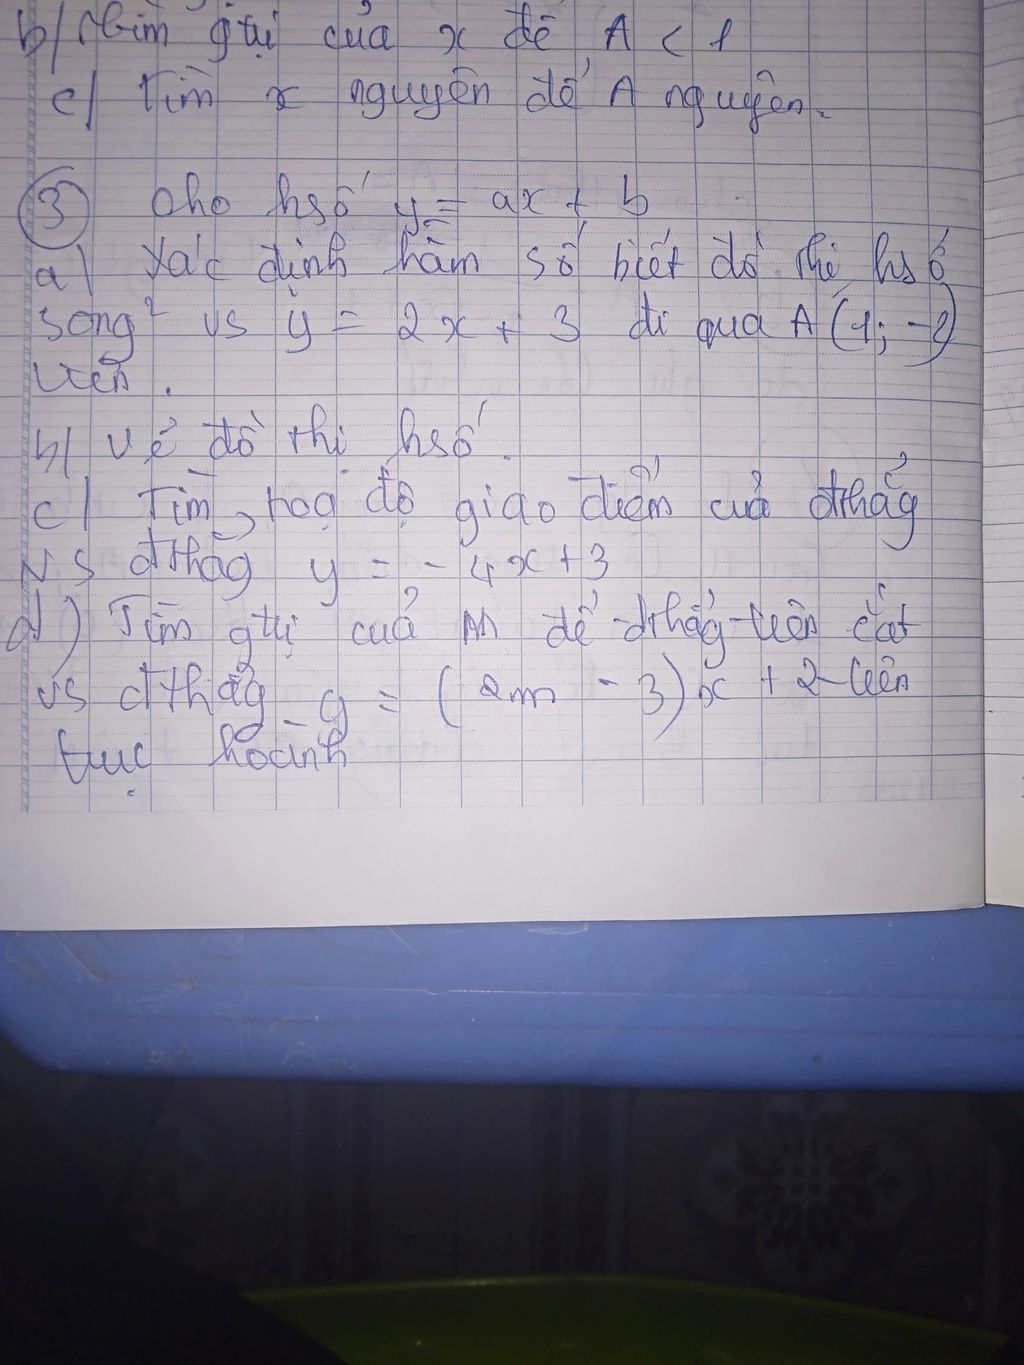 b/ Tìm gtrị của x để A < 1
c/ Tìm x nguyên để A nguyên.
③ Cho hsố y = ax + b
a/ Xác định hàm số biết đồ thị hsố
song² vs y = 2x + 3 đi qua A (1; -2)
trên.
b/ Vẽ đồ thị hsố.
c/ Tìm toạ độ giao điểm của đthẳg
vs đthẳg y = - 4x + 3
d) Tìm gtrị của m để đthẳg trên cắt
vs đthẳg y = (2m - 3)x + 2 trên
trục hoành